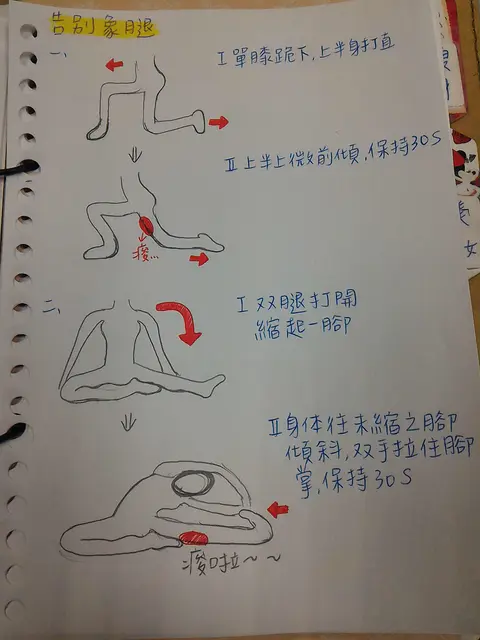 告別象腿
一、
I 單膝跪下,上半身打直
II 上半上微前傾,保持30S
痠...
二、
I 双腿打開
縮起一腳
II 身体往未縮之腳
傾斜,双手拉住腳
掌,保持30S
痠口拉~~
女